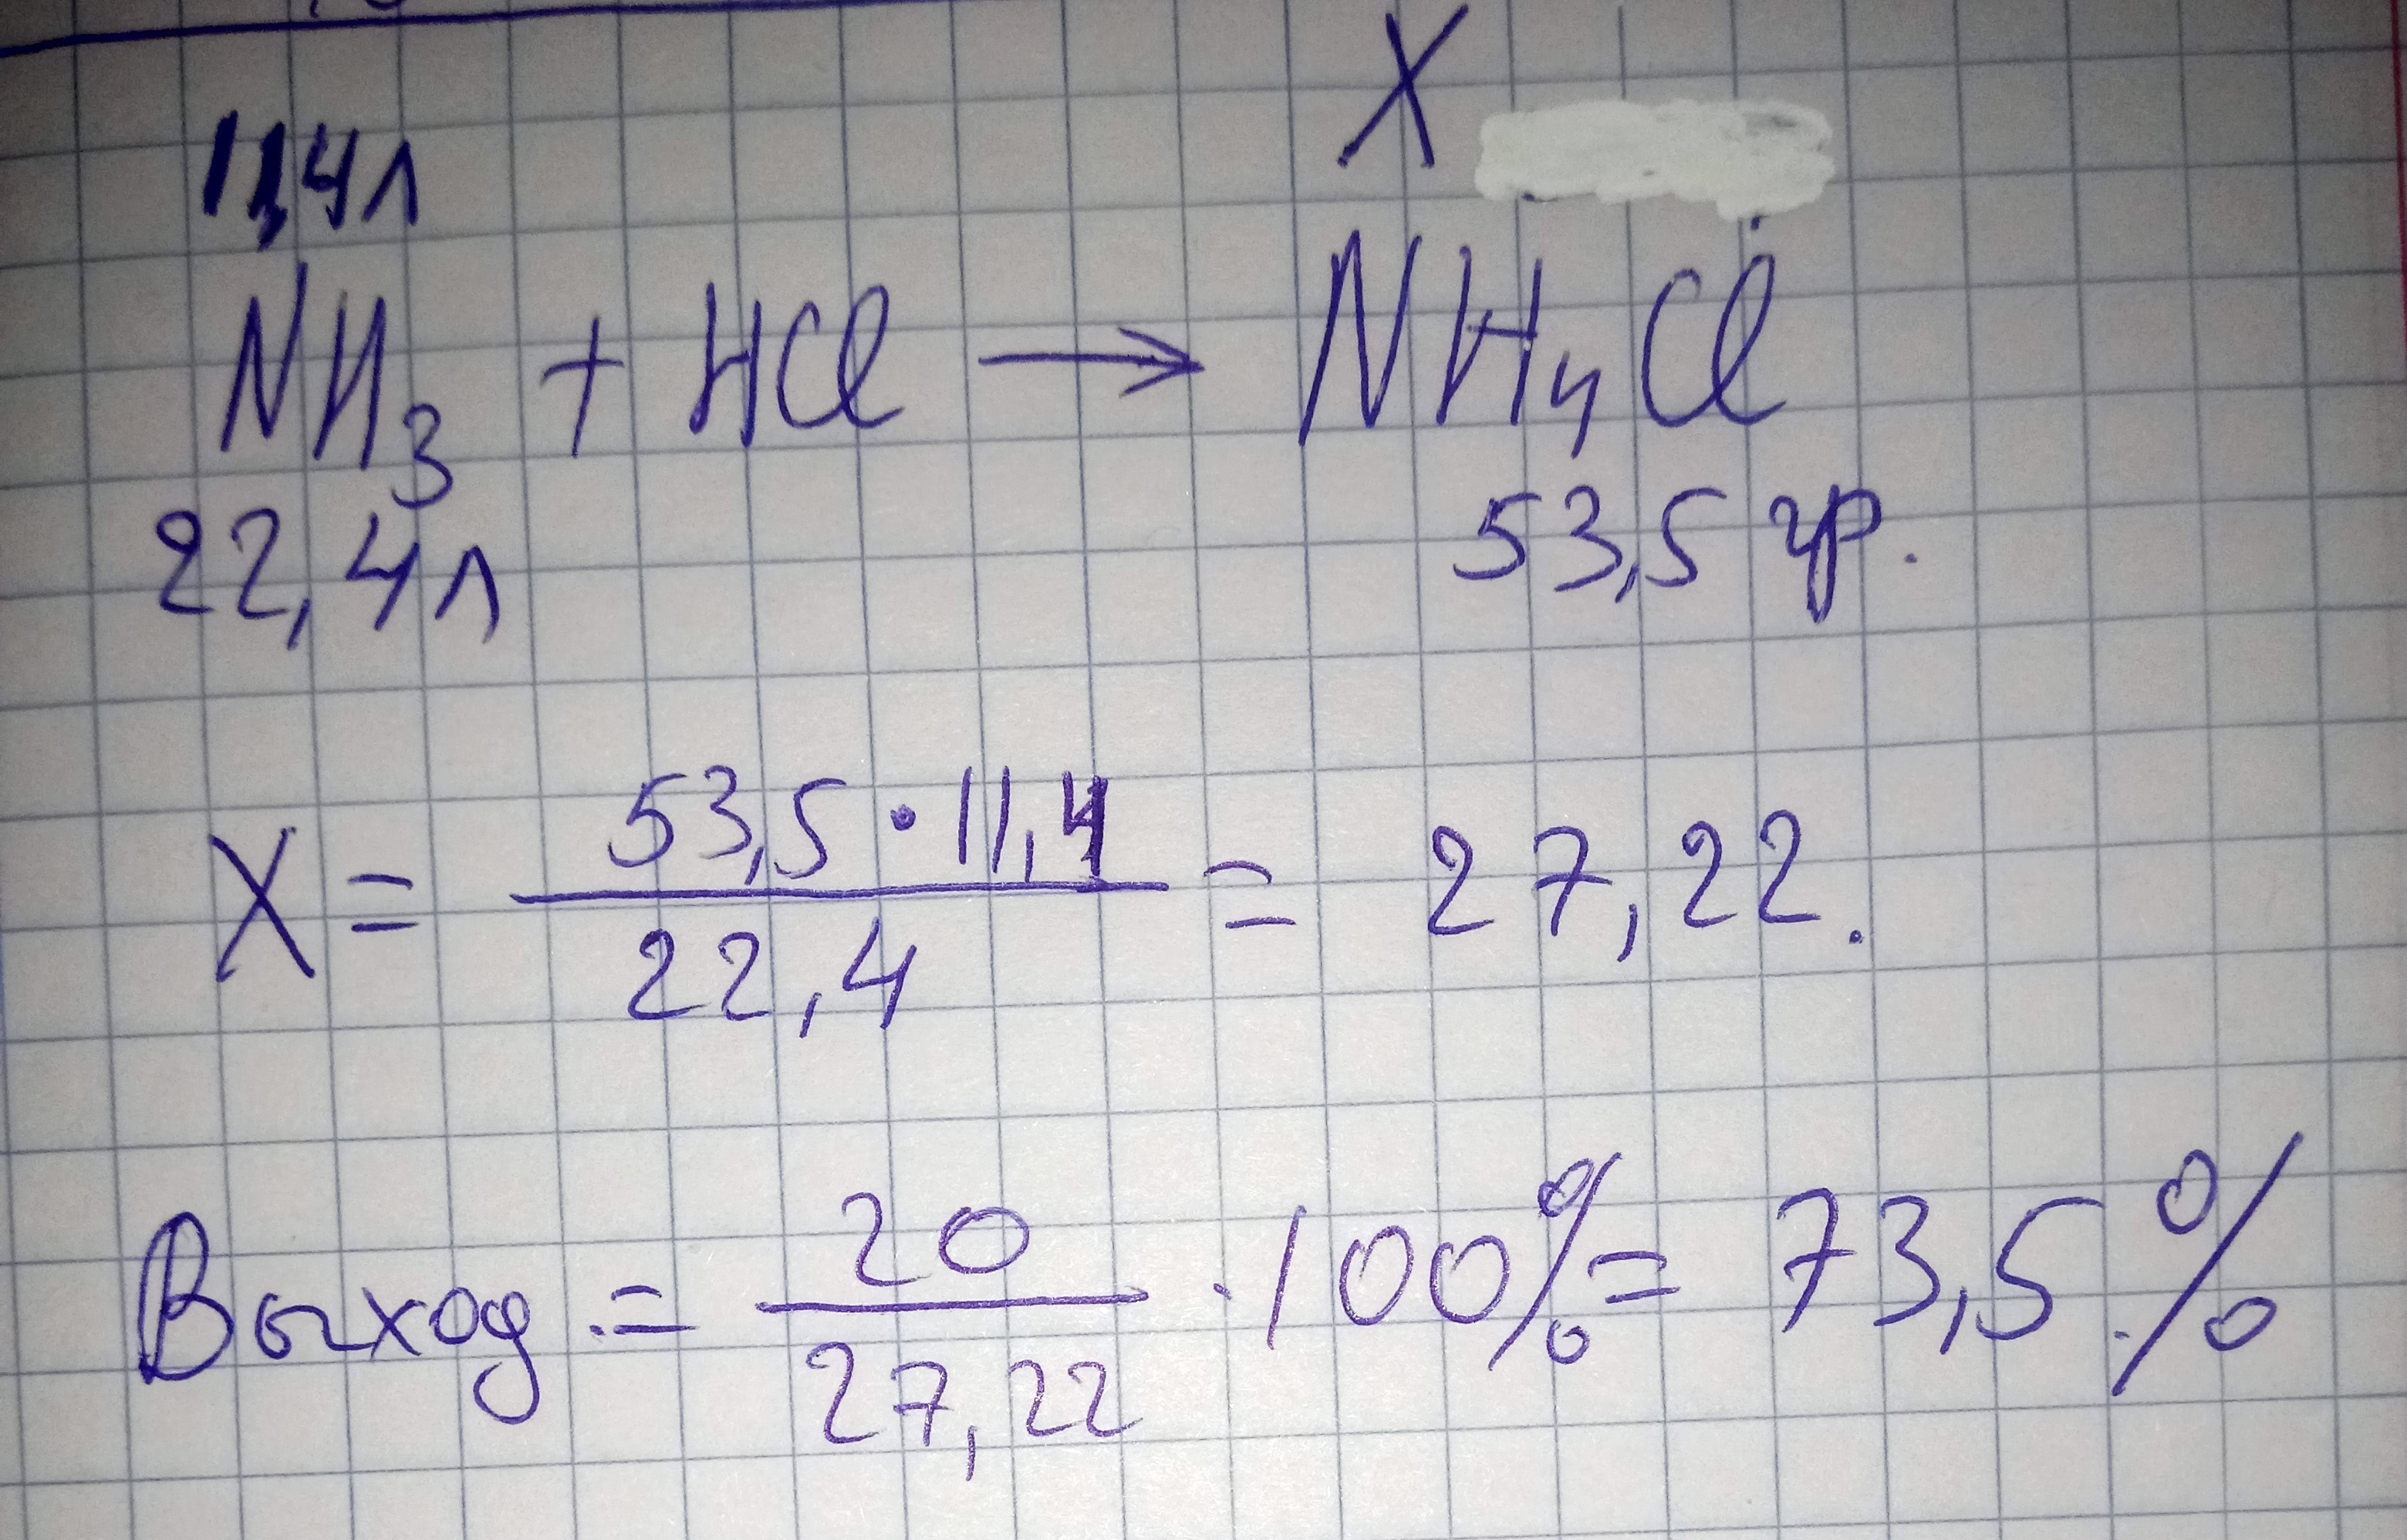 X
11,4л
NH₃ + HCl → NH₄Cl
22,4л 53,5 гр.
X = 53,5 · 11,4 / 22,4 = 27,22.
Выход = 20 / 27,22 · 100% = 73,5%